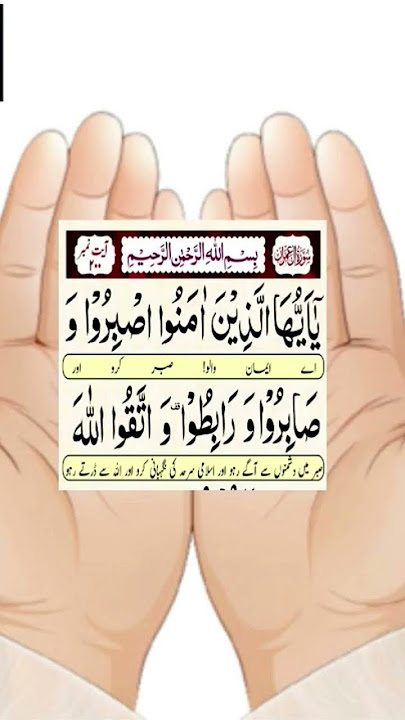 سورۃ اٰل عمران بِسْمِ اللهِ الرَّحْمٰنِ الرَّحِیْمِ آیت نمبر ۲۰۰
یٰۤاَیُّهَا الَّذِیْنَ اٰمَنُوا اصْبِرُوْا وَ
اے ایمان والو! صبر کرو اور
صَابِرُوْا وَ رَابِطُوْا ۫ وَ اتَّقُوا اللهَ
صبر میں دشمنوں سے آگے رہو اور اسلامی سرحد کی نگہبانی کرو اور اللہ سے ڈرتے رہو